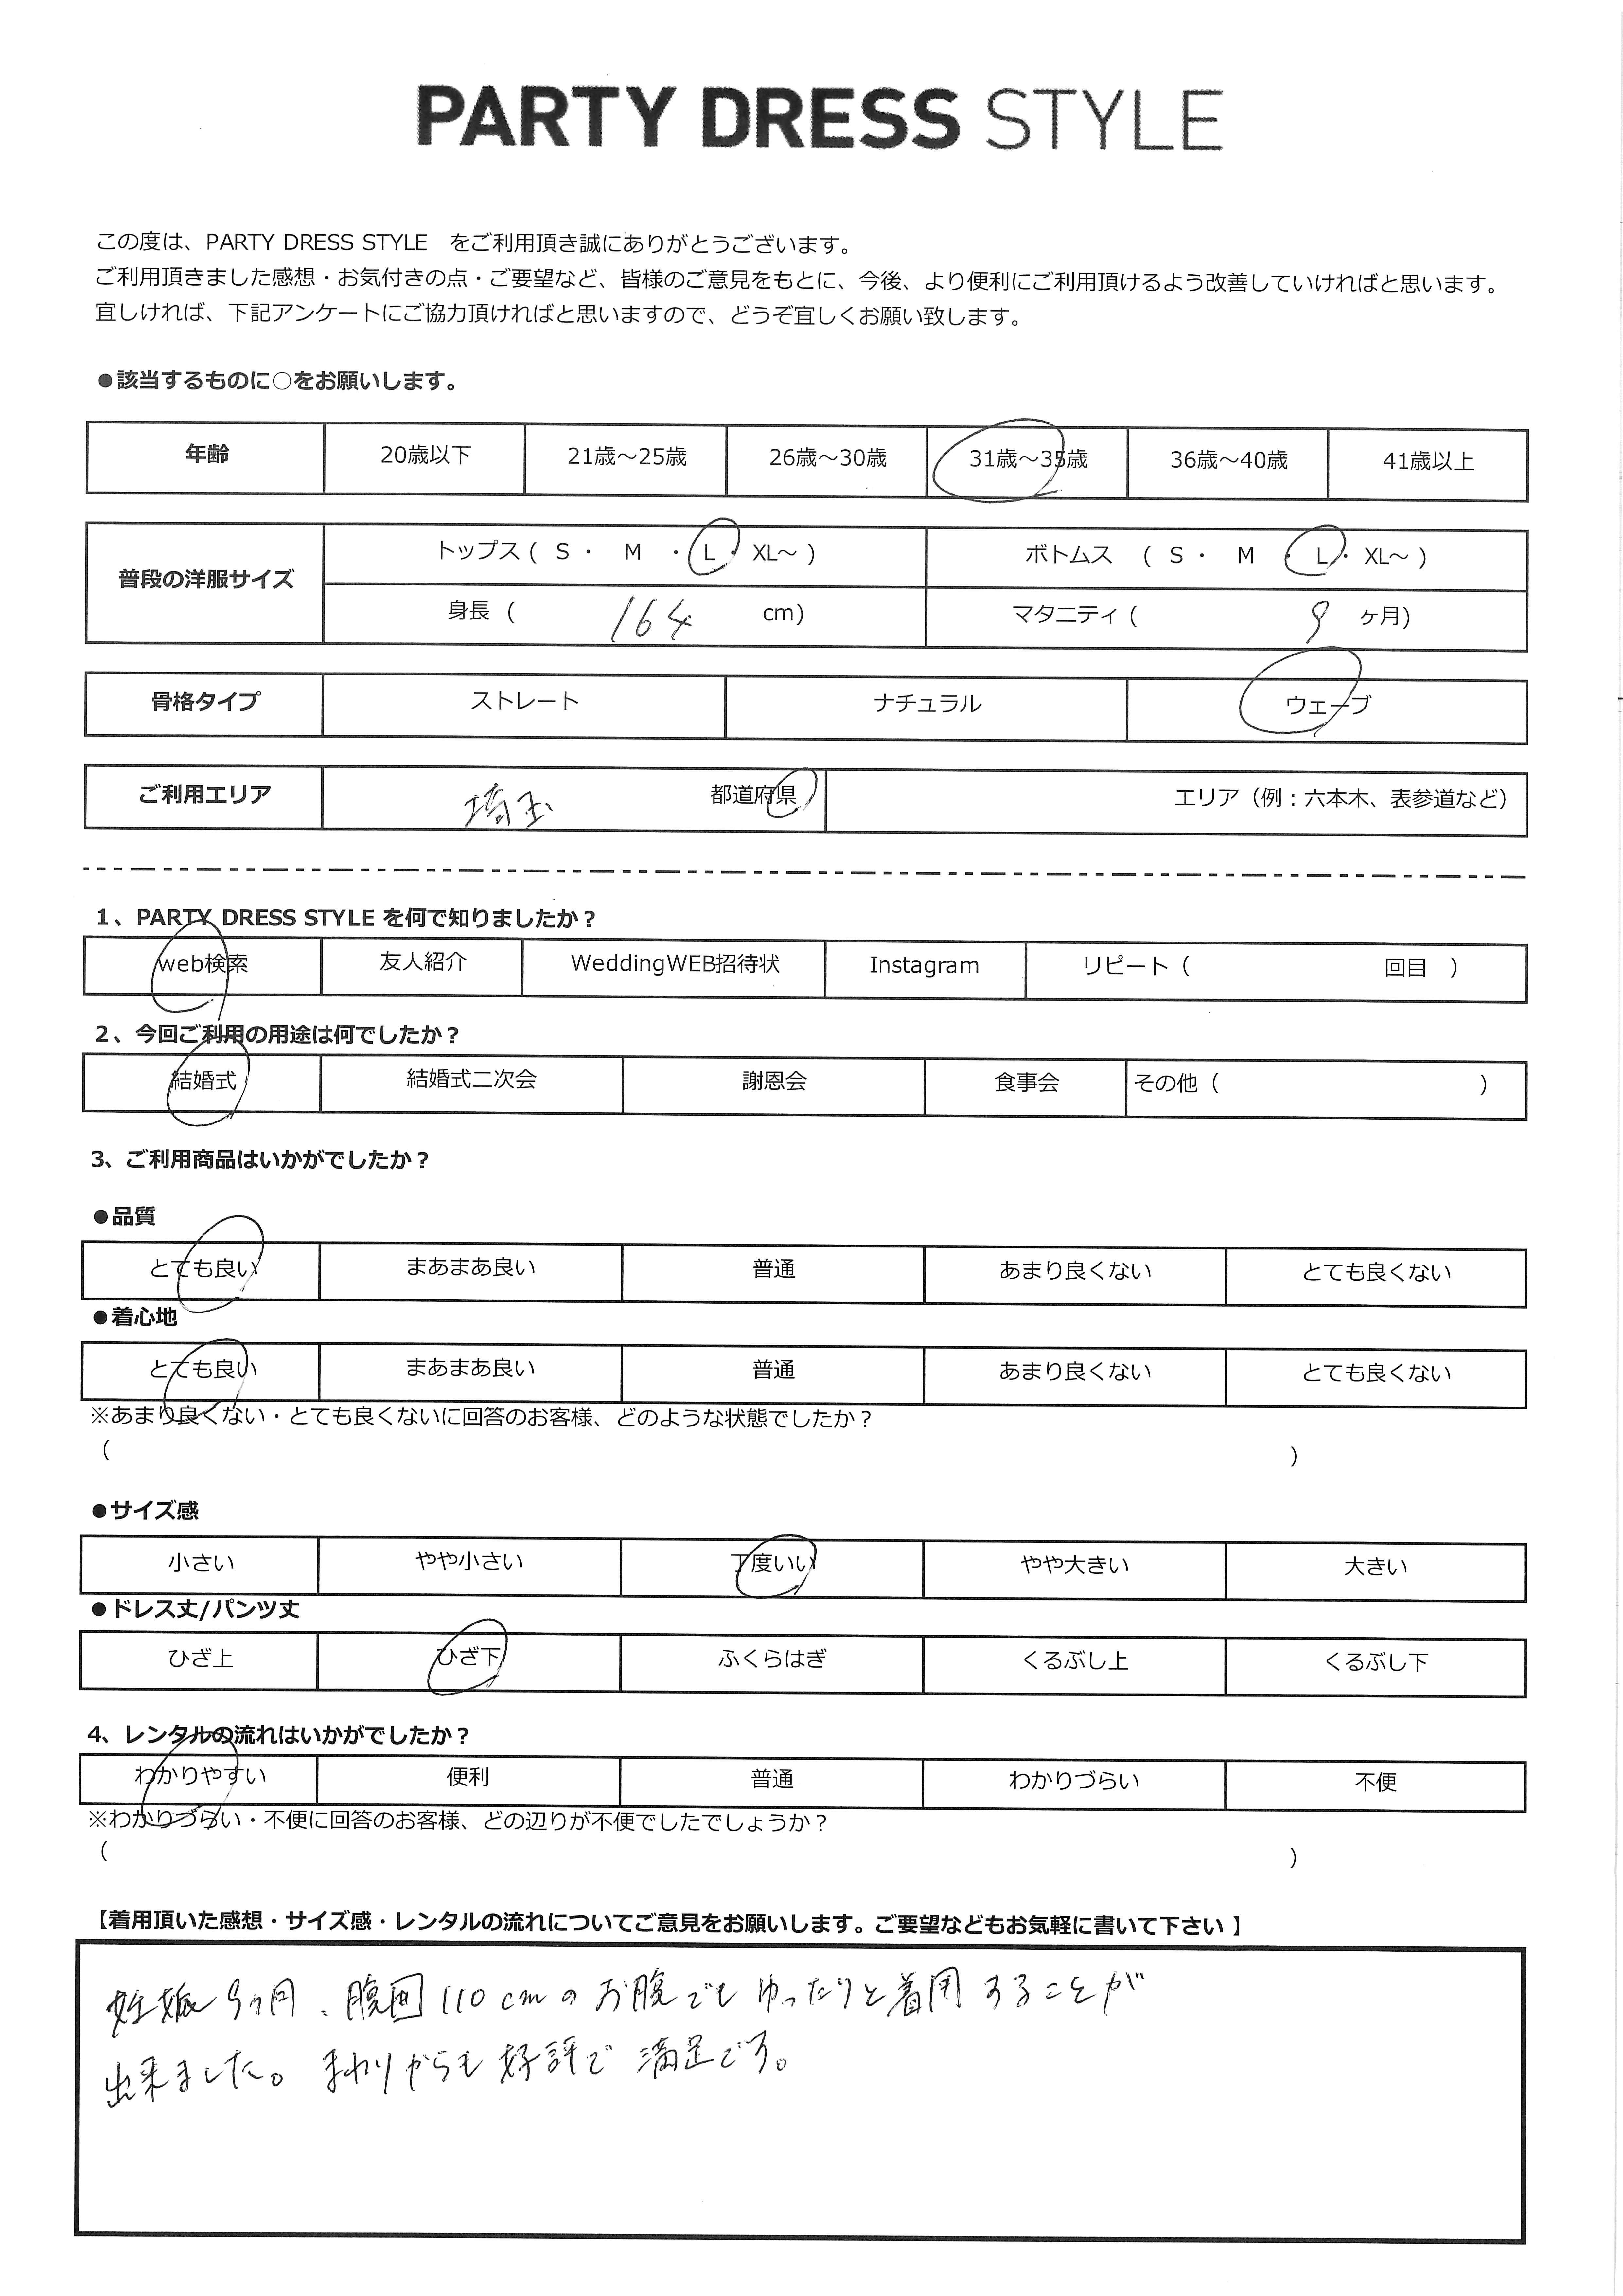 PARTY DRESS STYLE
この度は、PARTY DRESS STYLE をご利用頂き誠にありがとうございます。
ご利用頂きました感想・お気付きの点・ご要望など、皆様のご意見をもとに、今後、より便利にご利用頂けるよう改善していければと思います。
宜しければ、下記アンケートにご協力頂ければと思いますので、どうぞ宜しくお願い致します。
●該当するものに○をお願いします。
年齢 20歳以下 21歳～25歳 26歳～30歳 31歳～35歳 36歳～40歳 41歳以上
普段の洋服サイズ トップス ( S ・ M ・ L ・ XL～ ) ボトムス ( S ・ M ・ L ・ XL～ )
身長 ( 164 cm) マタニティ ( 9 ヶ月)
骨格タイプ ストレート ナチュラル ウェーブ
ご利用エリア 埼玉 都道府県 エリア（例：六本木、表参道など）
1、PARTY DRESS STYLE を何で知りましたか？
web検索 友人紹介 WeddingWEB招待状 Instagram リピート（ 回目 ）
2、今回ご利用の用途は何でしたか？
結婚式 結婚式二次会 謝恩会 食事会 その他（ ）
3、ご利用商品はいかがでしたか？
●品質
とても良い まあまあ良い 普通 あまり良くない とても良くない
●着心地
とても良い まあまあ良い 普通 あまり良くない とても良くない
※あまり良くない・とても良くないに回答のお客様、どのような状態でしたか？
( )
●サイズ感
小さい やや小さい 丁度いい やや大きい 大きい
●ドレス丈/パンツ丈
ひざ上 ひざ下 ふくらはぎ くるぶし上 くるぶし下
4、レンタルの流れはいかがでしたか？
わかりやすい 便利 普通 わかりづらい 不便
※わかりづらい・不便に回答のお客様、どの辺りが不便でしたでしょうか？
( )
【着用頂いた感想・サイズ感・レンタルの流れについてご意見をお願いします。ご要望などもお気軽に書いて下さい 】
妊娠9ヶ月、腹囲110cmのお腹でもゆったりと着用することが
出来ました。まわりからも好評で満足です。